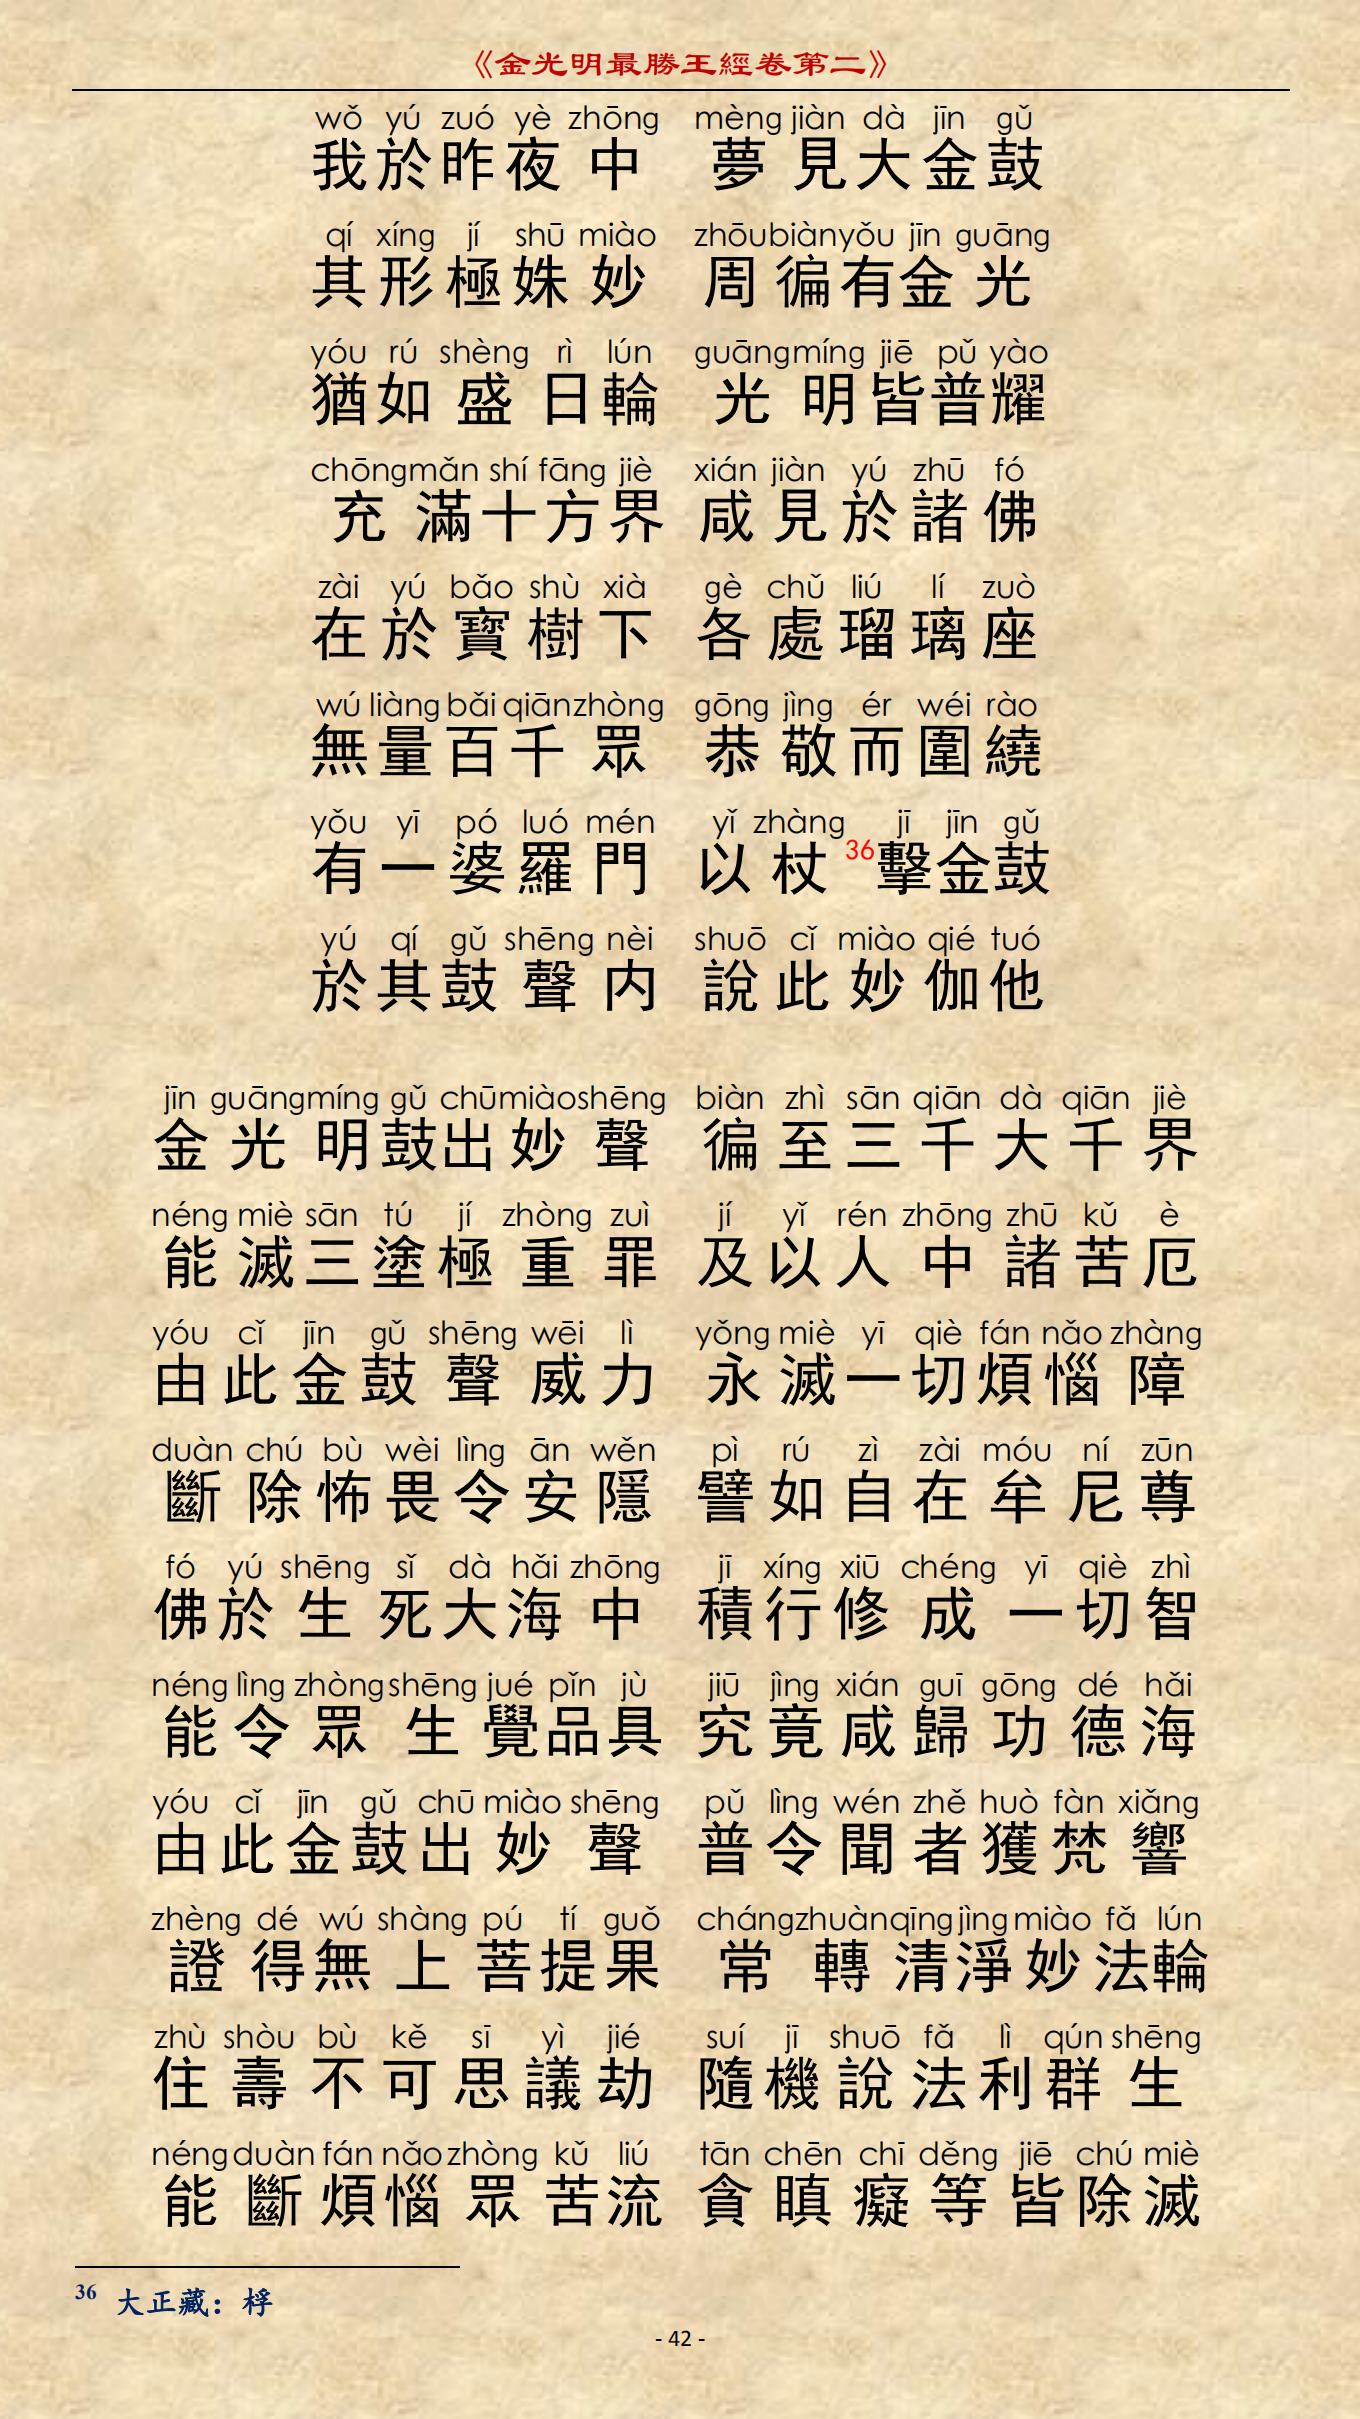 《金光明最勝王經卷第二》
wǒ yú zuó yè zhōng mèng jiàn dà jīn gǔ
我於昨夜中 夢見大金鼓
qí xíng jí shū miào zhōu biàn yǒu jīn guāng
其形極姝妙 周徧有金光
yóu rú shèng rì lún guāng míng jiē pǔ yào
猶如盛日輪 光明皆普耀
chōng mǎn shí fāng jiè xián jiàn yú zhū fó
充滿十方界 咸見於諸佛
zài yú bǎo shù xià gè chǔ liú lí zuò
在於寶樹下 各處瑠璃座
wú liàng bǎi qiān zhòng gōng jìng ér wéi rào
無量百千眾 恭敬而圍繞
yǒu yī pó luó mén yǐ zhàng jī jīn gǔ
有一婆羅門 以杖36擊金鼓
yú qí gǔ shēng nèi shuō cǐ miào qié tuó
於其鼓聲内 說此妙伽他
jīn guāng míng gǔ chū miào shēng biàn zhì sān qiān dà qiān jiè
金光明鼓出妙聲 徧至三千大千界
néng miè sān tú jí zhòng zuì jí yǐ rén zhōng zhū kǔ è
能滅三塗極重罪 及以人中諸苦厄
yóu cǐ jīn gǔ shēng wēi lì yǒng miè yī qiè fán nǎo zhàng
由此金鼓聲威力 永滅一切煩惱障
duàn chú bù wèi lìng ān wěn pì rú zì zài móu ní zūn
斷除怖畏令安隱 譬如自在牟尼尊
fó yú shēng sǐ dà hǎi zhōng jī xíng xiū chéng yī qiè zhì
佛於生死大海中 積行修成一切智
néng lìng zhòng shēng jué pǐn jù jiū jìng xián guī gōng dé hǎi
能令眾生覺品具 究竟咸歸功德海
yóu cǐ jīn gǔ chū miào shēng pǔ lìng wén zhě huò fàn xiǎng
由此金鼓出妙聲 普令聞者獲梵響
zhèng dé wú shàng pú tí guǒ cháng zhuàn qīng jìng miào fǎ lún
證得無上菩提果 常轉清淨妙法輪
zhù shòu bù kě sī yì jié suí jī shuō fǎ lì qún shēng
住壽不可思議劫 隨機說法利群生
néng duàn fán nǎo zhòng kǔ liú tān chēn chī děng jiē chú miè
能斷煩惱眾苦流 貪瞋癡等皆除滅
36 大正藏：桴
- 42 -